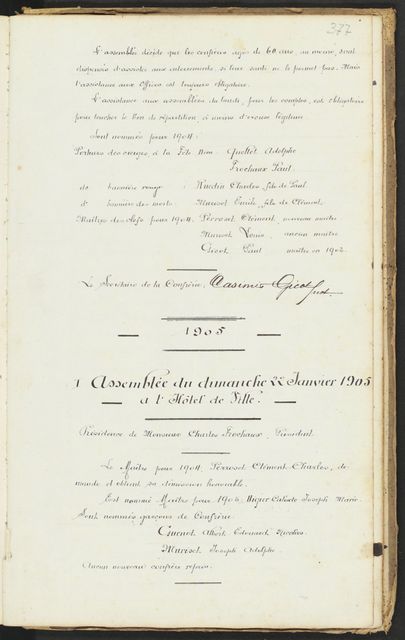 377
L'assemblée décide que les confrères agés de 60 ans, au moins, sont
dispensés d'assister aux enterrements, si leur santé ne le permet pas. Mais
l'assistance aux Offices est toujours obligatoire.
L'assistance aux assemblées du lundi, pour les comptes, est obligatoire
pour toucher le bon de répartition, à moins d'excuse légitime.
Sont nommés pour 1904:
Porteurs des cierges, à la Fête Dieu: Quellet Adolphe
Frochaux Paul
do bannière rouge: Ruedin Charles, fils de Paul
do bannière des morts: Murisot Emile, fils de Clément
Maîtres des clefs pour 1904: Perroset Clément, nouveau maître
Murisot Louis, ancien maître
Gicot Paul maître en 1902
Le Secrétaire de la Confrérie: Casimir Gicot
1905
1 Assemblée du dimanche 22 Janvier 1905
à l'Hôtel de Ville.
Présidence de Monsieur Charles Frochaux, Président
Le Maître pour 1904 Perroset Clément-Charles, de-
mande et obtient sa démission honorable.
Est nommé Maître pour 1905 Joseph Marie
Sont nommés garçons de Confrérie
Guenot Albert Edouard Nicolas
Murisot Joseph Adolphe
Aucun nouveau confrère reçu